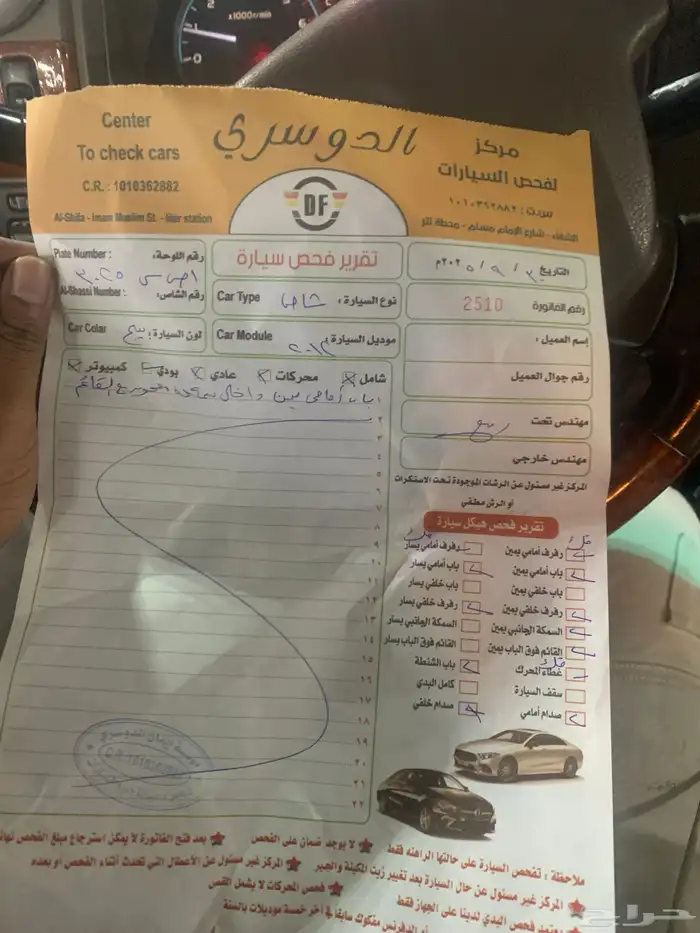 Center
To check cars
C.R. : 1010362882
Al-Shifa - Imam Muslim St. - liter station
الدوسري
مركز
لفحص السيارات
س.ت : ١٠١٠٣٦٢٨٨٢
الشفاء - شارع الإمام مسلم - محطة لتر
DF
تقرير فحص سيارة
Plate Number : رقم اللوحة:
٣٠٢٥
Al-Shassi Number : رقم الشاص:
Car Type نوع السيارة:
Car Colar لون السيارة: بيج
Car Module موديل السيارة:
٢٠١٢
التاريخ ٣ / ٩ / ٢٠٢٥م
رقم الفاتورة 2510
إسم العميل :
رقم جوال العميل
مهندس تحت ربيع
مهندس خارجي
المركز غير مسئول عن الرشات الموجودة تحت الاستكرات
أو الرش مطفي
شامل محركات عادي بودي كمبيوتر
٢
٣
٤
٥
٦
٧
٨
٩
١٠
١١
١٢
١٣
١٤
١٥
١٦
١٧
١٨
١٩
٢٠
٢١
٢٢
تقرير فحص هيكل سيارة
رفرف أمامي يمين رفرف أمامي يسار
باب أمامي يمين باب أمامي يسار
باب خلفي يمين باب خلفي يسار
رفرف خلفي يمين رفرف خلفي يسار
السمكة الجانبي يمين السمكة الجانبي يسار
القائم فوق الباب يمين القائم فوق الباب يسار
غطاء المحرك باب الشنطة
سقف السيارة كامل البدي
صدام أمامي صدام خلفي
ملاحظة : تفحص السيارة على حالتها الراهنه فقط
لا يوجد ضمان على الفحص
بعد فتح الفاتورة لا يمكن استرجاع مبلغ الفحص
المركز غير مسئول عن حال السيارة بعد تغيير زيت المكينة والجير
المركز غير مسئول عن الأعطال التي تحدث أثناء الفحص او بعده
يعتمد فحص البدي لدينا على الجهاز فقط
فحص المحركات لا يشمل القص
أو الدفرنس مفكوك سابقا في آخر خمسة موديلات بالسنة
حراج